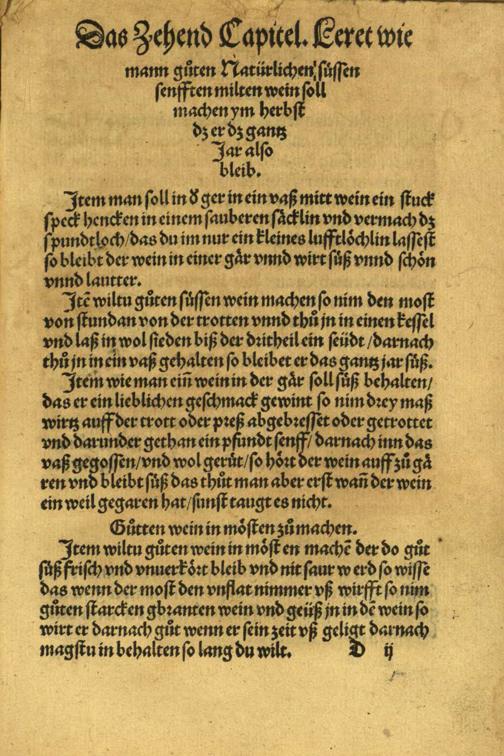 Das Zehend Capitel. Leret wie
mann gůten Natürlichen, süssen
senfften milten wein soll
machen ym herbst
dz er dz gantz
Jar also
bleib.
Jtem man soll in d ger in ein vaß mitt wein ein stuck
speck hencken in einem sauberen säcklin vnd vermach dz
spundtloch/das du im nur ein kleines lufftlöchlin lassest
so bleibt der wein in einer gär vnnd wirt süß vnnd schön
vnnd lautter.
Jtē wiltu gůten süssen wein machen so nim den most
von stundan von der trotten vnnd thů jn in einen kessel
vnd laß in wol sieden biß der dritheil ein seüdt/darnach
thů jn in ein vaß gehalten so bleibet er das gantz jar süß.
Jtem wie man ein̄ wein in der gär soll süß behalten/
das er ein lieblichen geschmack gewint so nim drey maß
wirtz auff der trott oder preß abgebresset oder getrottet
vnd darunder gethan ein pfundt senff/darnach inn das
vaß gegossen/vnd wol gerůt/so hört der wein auff zů gä
ren vnd bleibt süß das thůt man aber erst wan̄ der wein
ein weil gegaren hat/sunst taugt es nicht.
Gůtten wein in mösten zů machen.
Jtem wiltu gůten wein in möst en machē der do gůt
süß frisch vnd vnuerkört bleib vnd nit saur werd so wisse
das wenn der most den vnflat nimmer vß wirfft so nim
gůten starcken gbranten wein vnd geüß jn in dē wein so
wirt er darnach gůt wenn er sein zeit vß geligt darnach
magstu in behalten so lang du wilt. D ij